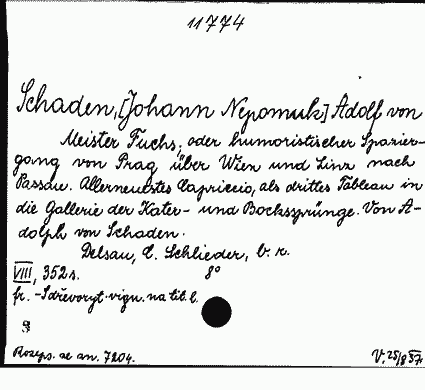 11774
Schaden, [Johann Nepomuk] Adolf von
Meister Fuchs; oder humoristischer Spazier-
gang von Prag über Wien und Linz nach
Passau. Allerneuestes Capriccio, als drittes Tableau in
die Gallerie der Kater- und Bocksprünge. Von A-
dolph von Schaden.
Dessau, C. Schlieder, b. r.
VIII, 352 s. 8°
fr. - 1 dřevoryt. vign. na tit. l.
Rozeps. ze an. 7204. V. 25/8 57.